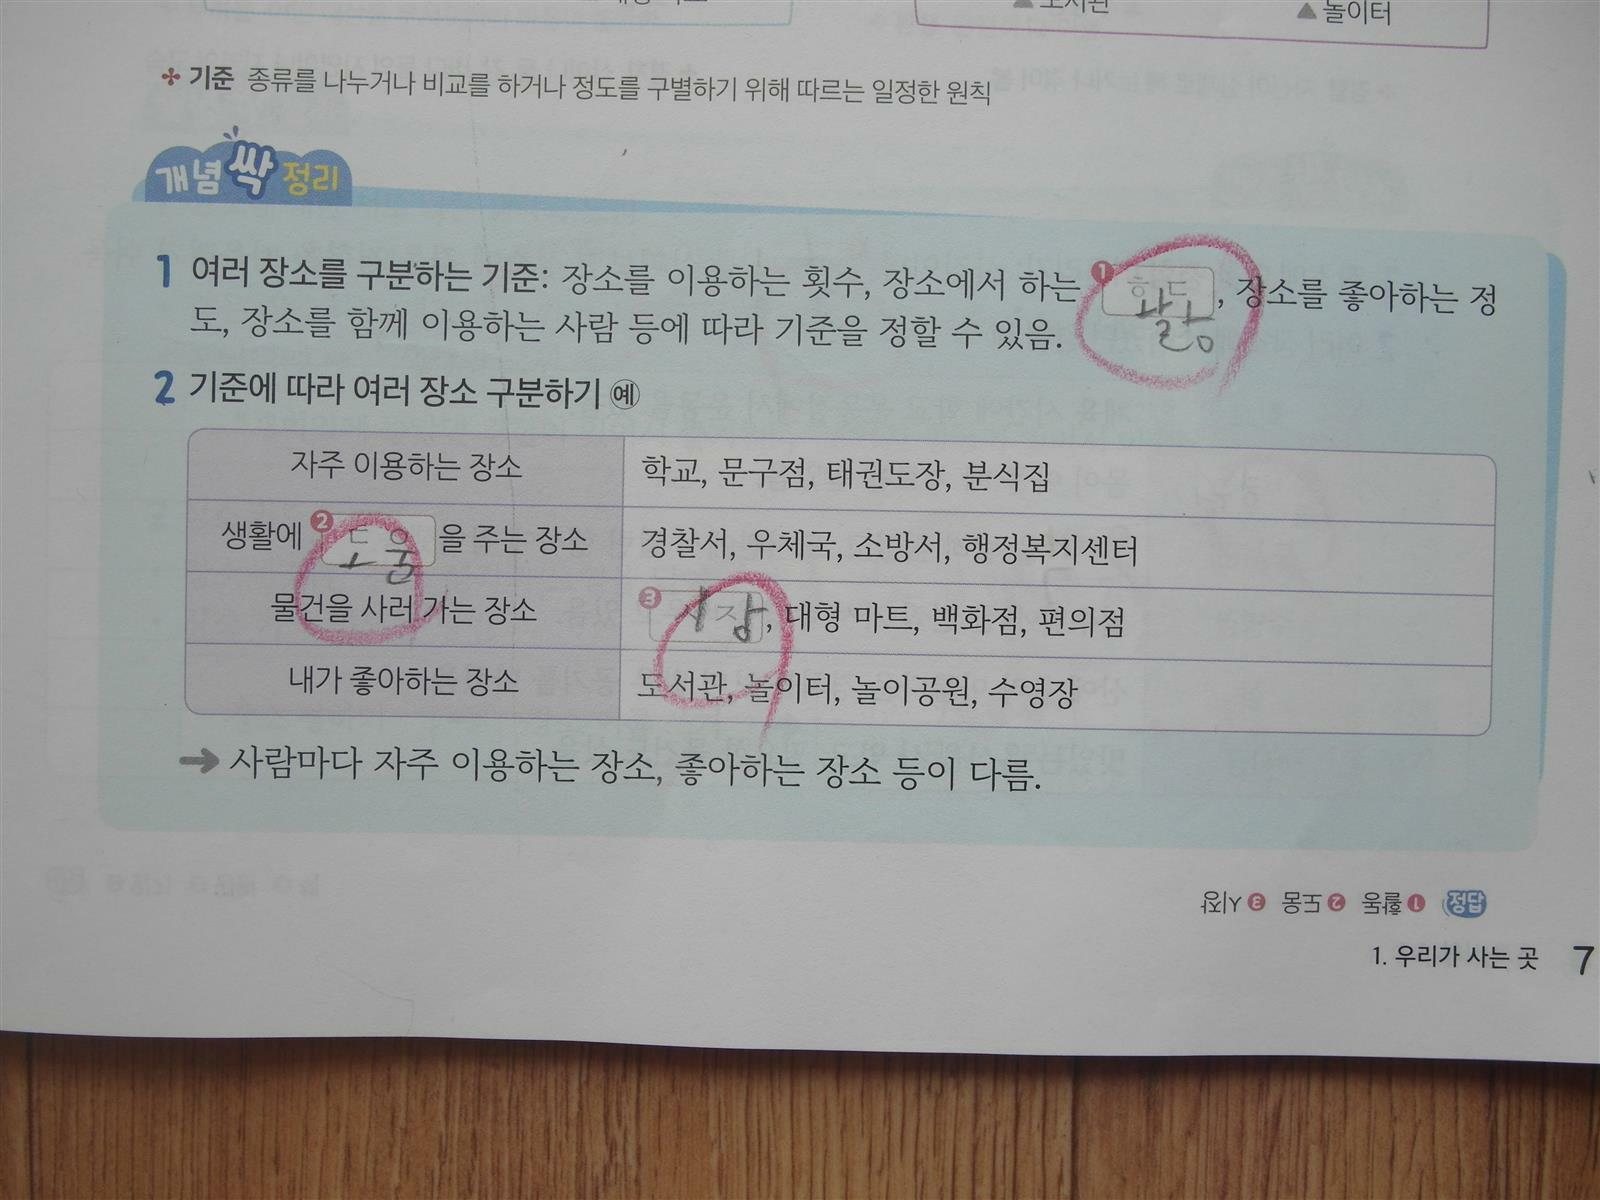 ▲ 놀이터
기준 종류를 나누거나 비교를 하거나 정도를 구별하기 위해 따르는 일정한 원칙
개념 싹 정리
1 여러 장소를 구분하는 기준: 장소를 이용하는 횟수, 장소에서 하는 ❶ 활동, 장소를 좋아하는 정
도, 장소를 함께 이용하는 사람 등에 따라 기준을 정할 수 있음.
2 기준에 따라 여러 장소 구분하기 예
자주 이용하는 장소 학교, 문구점, 태권도장, 분식집
생활에 ❷ 도움 을 주는 장소 경찰서, 우체국, 소방서, 행정복지센터
물건을 사러 가는 장소 ❸ 시장, 대형 마트, 백화점, 편의점
내가 좋아하는 장소 도서관, 놀이터, 놀이공원, 수영장
➔ 사람마다 자주 이용하는 장소, 좋아하는 장소 등이 다름.
정답 ❶ 활동 ❷ 도움 ❸ 시장
1. 우리가 사는 곳 7